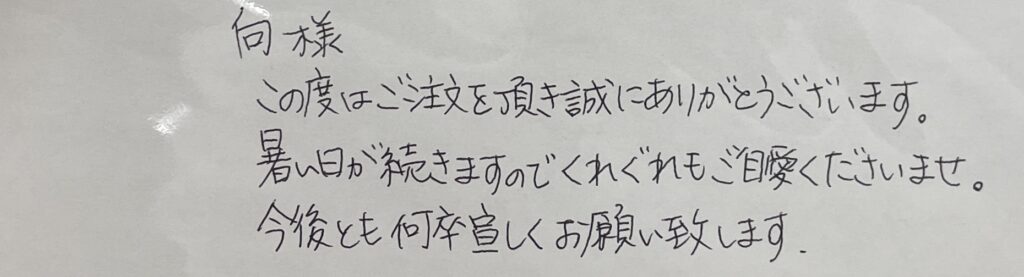 向様
この度はご注文を頂き誠にありがとうございます。
暑い日が続きますのでくれぐれもご自愛くださいませ。
今後とも何卒宜しくお願い致します.